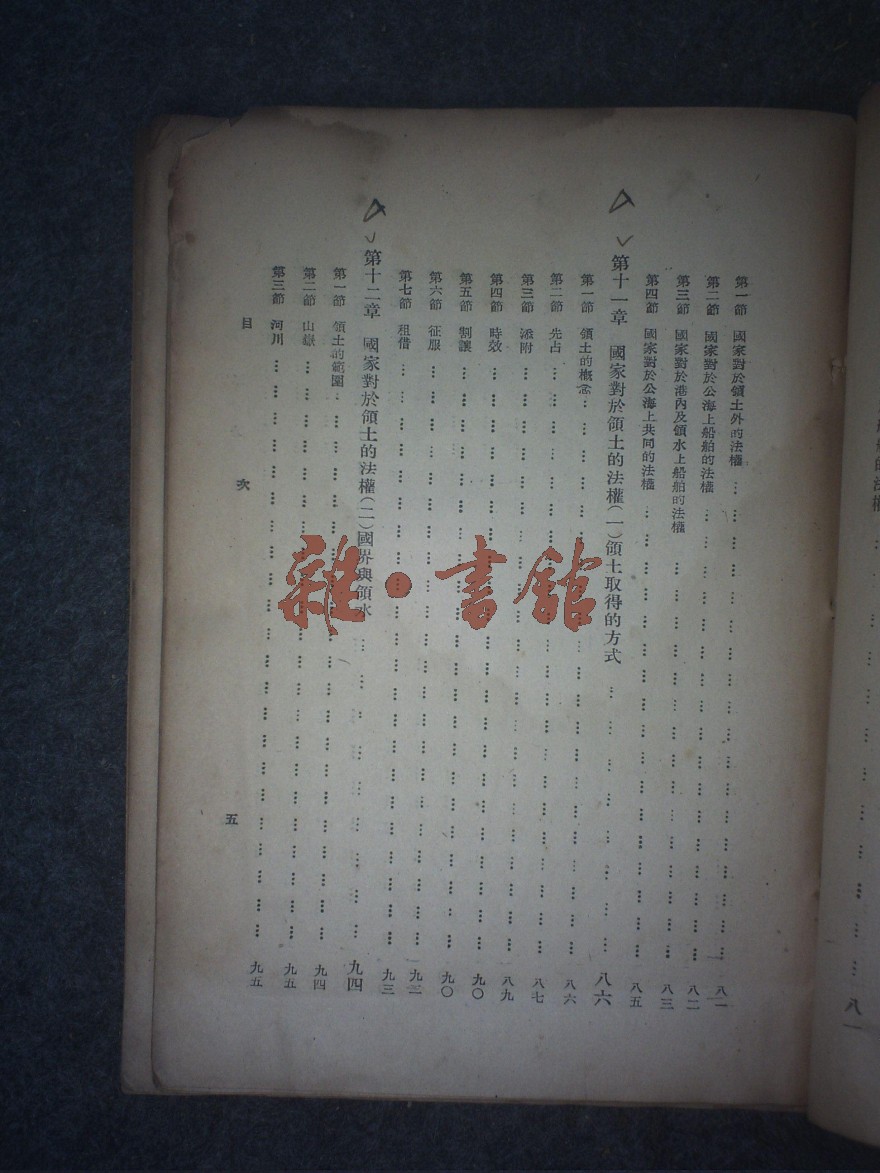 第一節　國家對於領土外的法權……八一
第二節　國家對於公海上船舶的法權……八二
第三節　國家對於港內及領水上船舶的法權……八三
第四節　國家對於公海上共同的法權……八五
第十一章　國家對於領土的法權(一)領土取得的方式……八六
第一節　領土的概念……八六
第二節　先占……八七
第三節　添附……八九
第四節　時效……九〇
第五節　割讓……九〇
第六節　征服……九二
第七節　租借……九三
第十二章　國家對於領土的法權(二)國界與領水……九四
第一節　領土的範圍……九四
第二節　山嶽……九五
第三節　河川……九五
目　次　五
雜·書館
八一